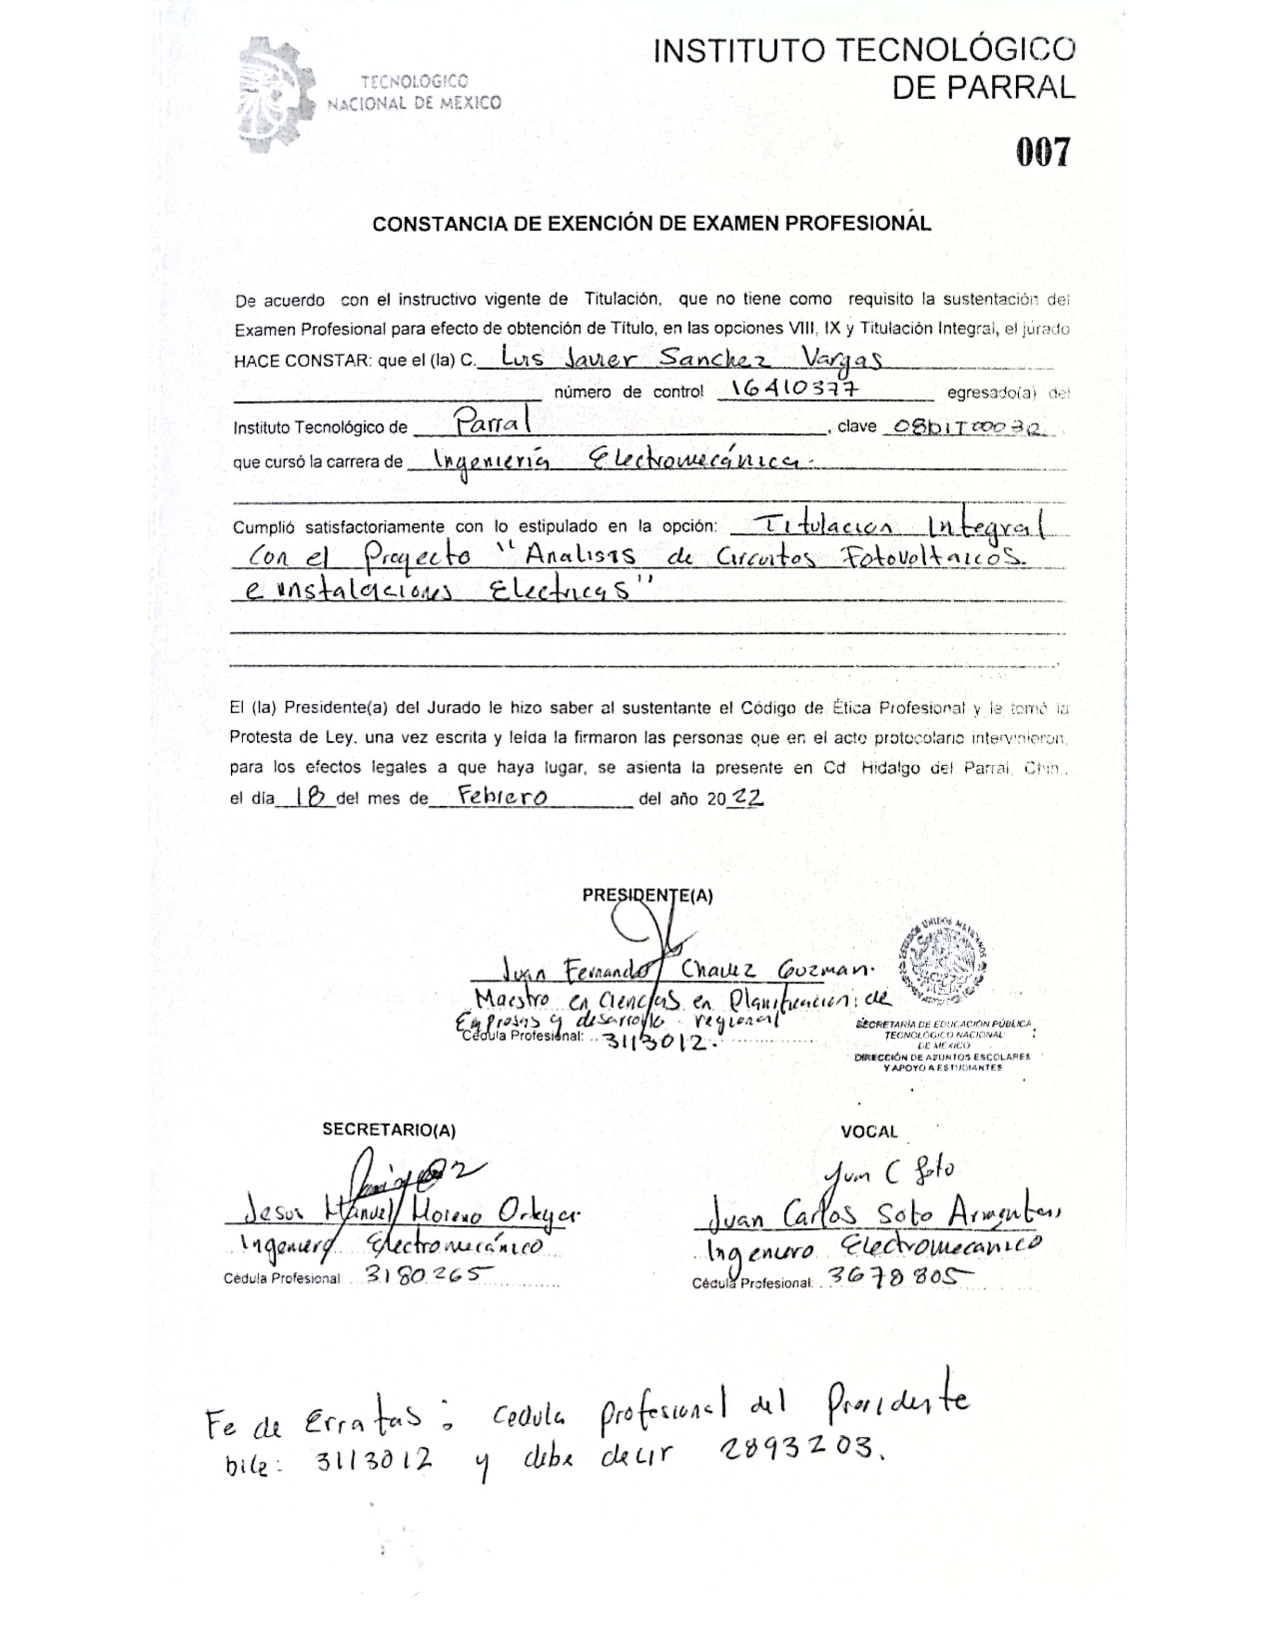 TECNOLOGICO
NACIONAL DE MEXICO
INSTITUTO TECNOLÓGICO
DE PARRAL
007
CONSTANCIA DE EXENCIÓN DE EXAMEN PROFESIONAL
De acuerdo con el instructivo vigente de Titulación, que no tiene como requisito la sustentación del
Examen Profesional para efecto de obtención de Título, en las opciones VIII, IX y Titulación Integral, el jurado
HACE CONSTAR: que el (la) C. Luis Javier Sanchez Vargas
número de control 16410377 egresado(a) del
Instituto Tecnológico de Parral, clave
que cursó la carrera de Ingeniería Electromecánica.
Cumplió satisfactoriamente con lo estipulado en la opción: Titulacion Integral
con el Proyecto "Analisis de Circuitos Fotovoltaicos.
e instalaciones Electricas"
El (la) Presidente(a) del Jurado le hizo saber al sustentante el Código de Ética Profesional y le tomó la
Protesta de Ley, una vez escrita y leída la firmaron las personas que en el acto protocolario intervinieron,
para los efectos legales a que haya lugar, se asienta la presente en Cd Hidalgo del Parral, Chih.,
el día 18 del mes de Febrero del año 2022
PRESIDENTE(A)
Juan Fernando Chavez Guzman.
Maestro en Ciencias en Planificacion de
Empresas y desarrollo regional
Cédula Profesional: 3113012.
ESTADOS UNIDOS MEXICANOS
SECRETARÍA DE EDUCACIÓN PÚBLICA
TECNOLÓGICO NACIONAL
DE MÉXICO
DIRECCIÓN DE ASUNTOS ESCOLARES
Y APOYO A ESTUDIANTES
SECRETARIO(A)
Jesus Manuel Moreno
Ingeniero Electromecánico
Cédula Profesional 3180265
VOCAL
Juan C Soto
Juan Carlos Soto Armentariz
Ingeniero Electromecanico
Cédula Profesional: 3678805
Fe de Erratas: Cedula profesional del Presidente
Dice: 3113012 y debe decir 2893203.